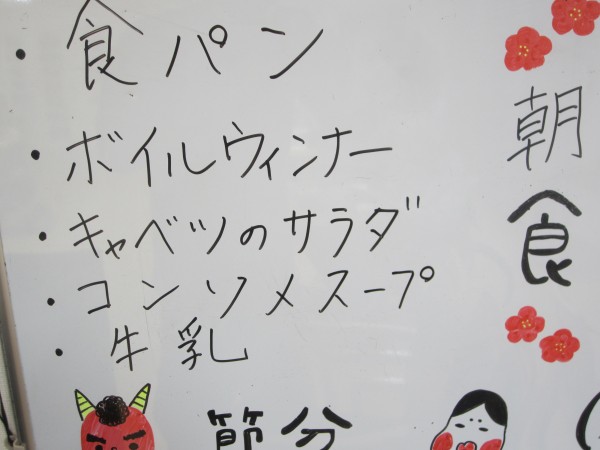 朝食
・食パン
・ボイルウィンナー
・キャベツのサラダ
・コンソメスープ
・牛乳
節分